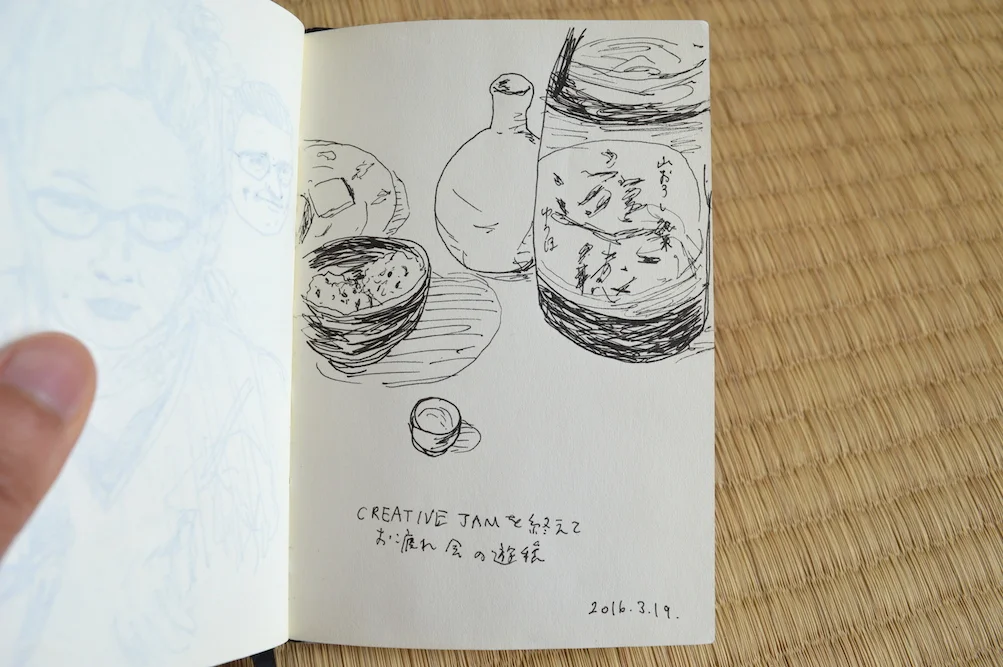 山おろし
CREATIVE JAMを終えて
お疲れ会の遊絵
2016.3.19.